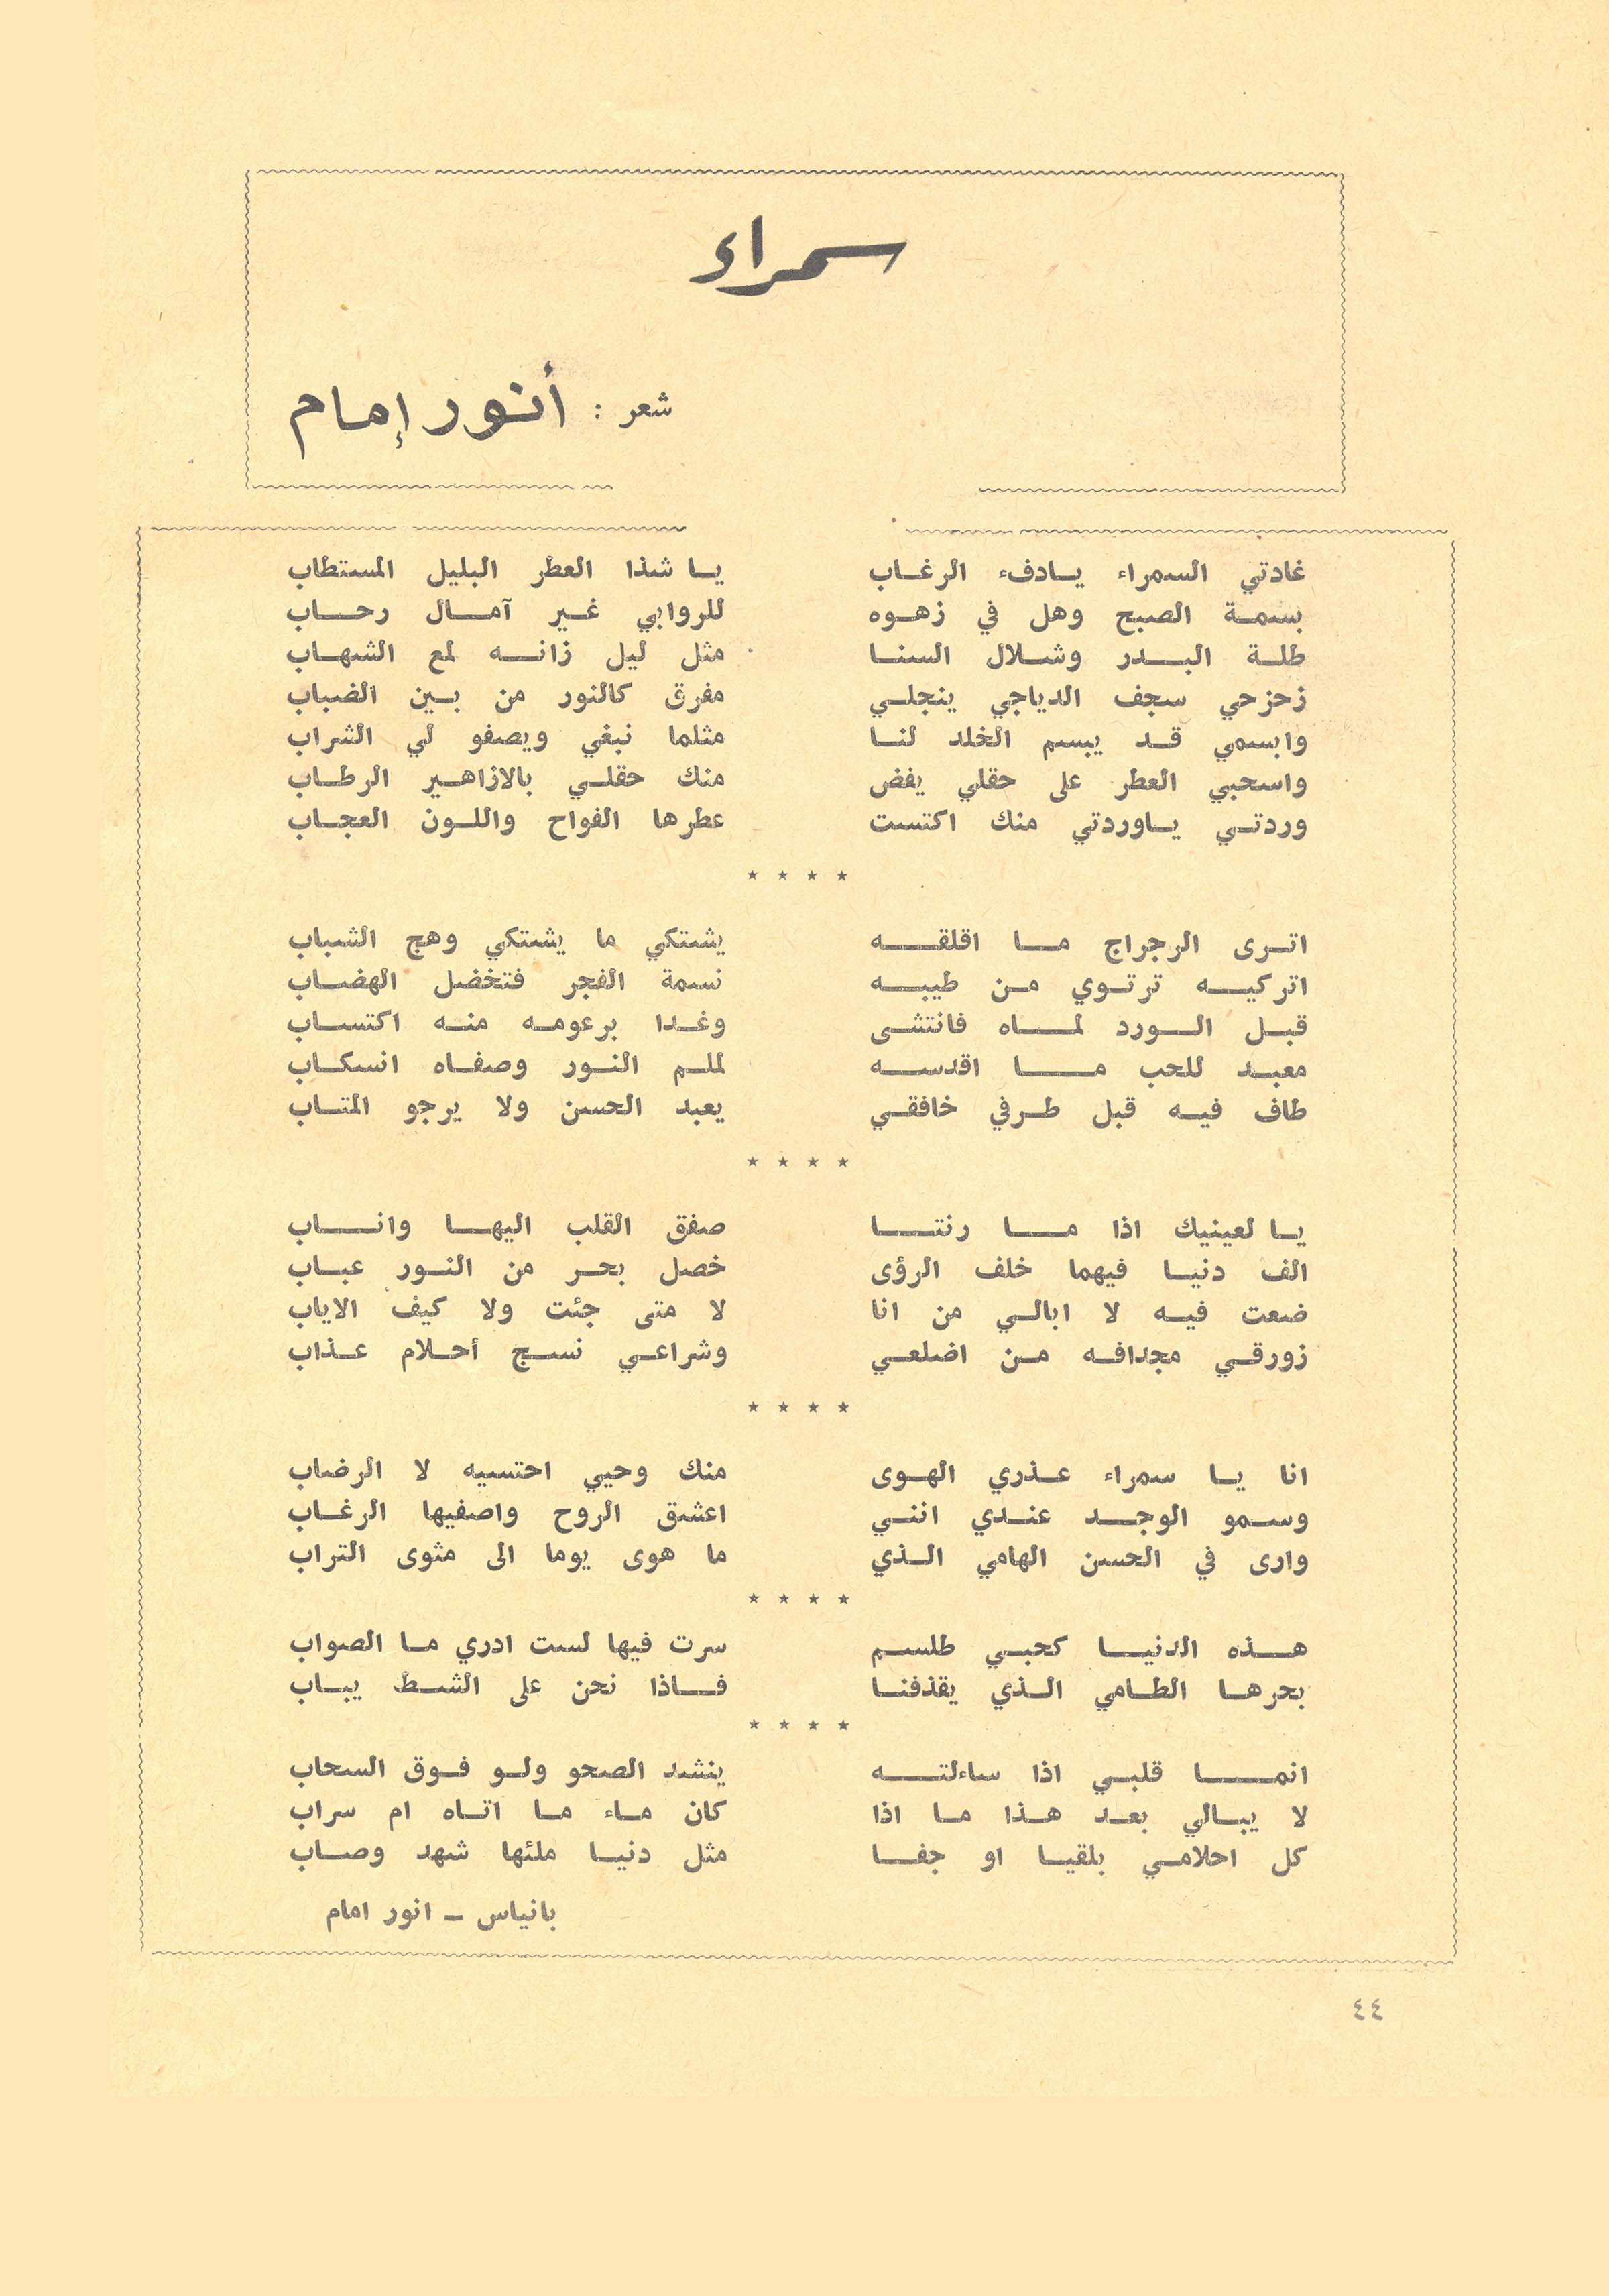 سمراء
شعر : أنور إمام
غادتي السمراء يادفء الرغاب يا شذا العطر البليل المستطاب
بسمة الصبح وهل في زهوه للروابي غير آمال رحاب
طلة البدر وشلال السنا مثل ليل زانه لمع الشهاب
زحزحي سجف الدياجي ينجلي مفرق كالنور من بين الضباب
وابسمي قد يبسم الخلد لنا مثلما نبغي ويصفو لي الشراب
واسحبي العطر على حقلي يفض منك حقلي بالازاهير الرطاب
وردتي ياوردتي منك اكتست عطرها الفواح واللون العجاب
* * * *
اترى الرجراج ما اقلقه يشتكي ما يشتكي وهج الشباب
اتركيه ترتوي من طيبه نسمة الفجر فتخضل الهضاب
قبل الورد لماه فانتشى وغدا برعومه منه اكتساب
معبد للحب ما اقدسه لملم النور وصفاه انسكاب
طاف فيه قبل طرفي خافقي يعبد الحسن ولا يرجو المتاب
* * * *
يا لعينيك اذا ما رنتا صفق القلب اليها واناب
الف دنيا فيهما خلف الرؤى خصل بحر من النور عباب
ضعت فيه لا ابالي من انا لا متى جئت ولا كيف الاياب
زورقي مجدافه من اضلعي وشراعي نسج أحلام عذاب
* * * *
انا يا سمراء عذري الهوى منك وحيي احتسيه لا الرضاب
وسمو الوجد عندي انني اعشق الروح واصفيها الرغاب
وارى في الحسن الهامي الذي ما هوى يوما الى مثوى التراب
* * * *
هذه الدنيا كحبي طلسم سرت فيها لست ادري ما الصواب
بحرها الطامي الذي يقذفنا فاذا نحن على الشط يباب
* * * *
انما قلبي اذا ساءلته ينشد الصحو ولو فوق السحاب
لا يبالي بعد هذا ما اذا كان ماء ما اتاه ام سراب
كل احلامي بلقيا او جفا مثل دنيا ملئها شهد وصاب
بانياس ــ انور امام
٤٤